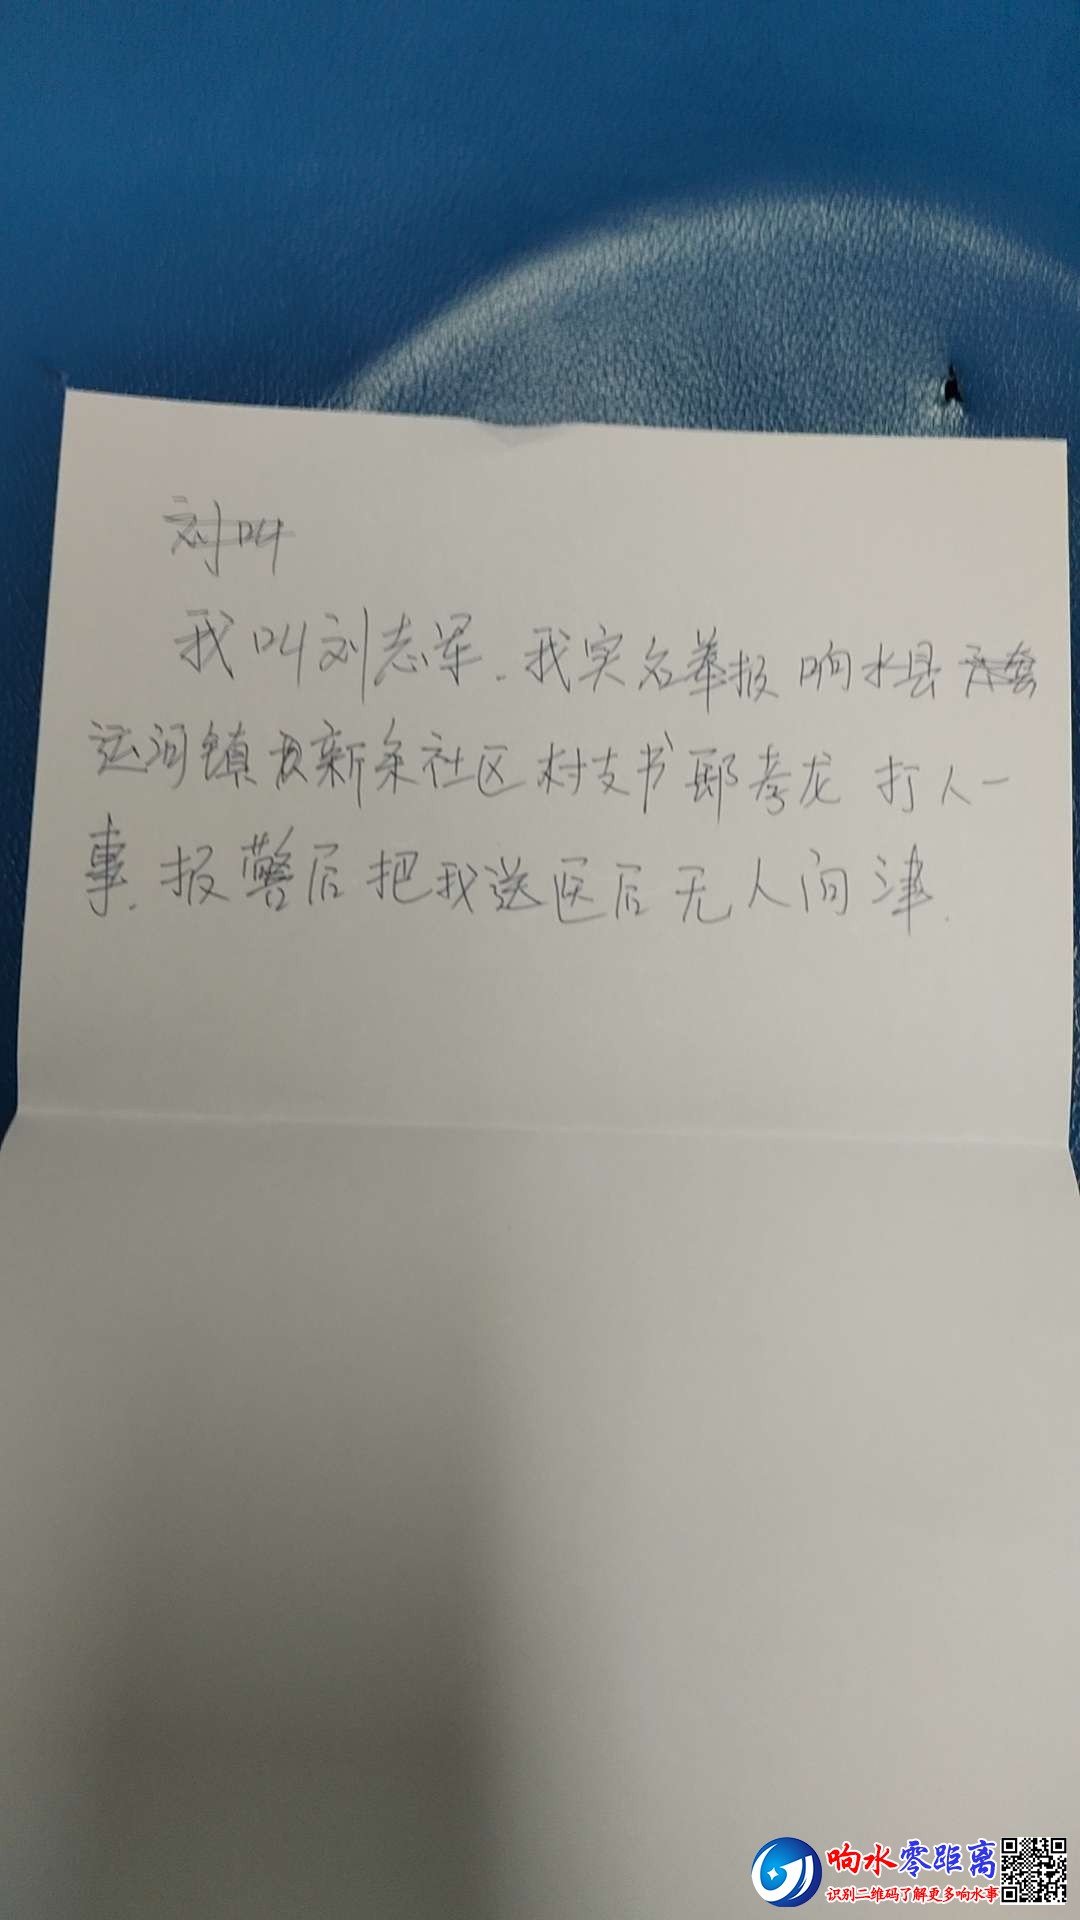 刘叫
我叫刘志军.我实名举报响水县六套
运河镇新条社区村支书邸孝龙打人一
事.报警后把我送医后无人问津.
响水零距离
识别二维码了解更多响水事